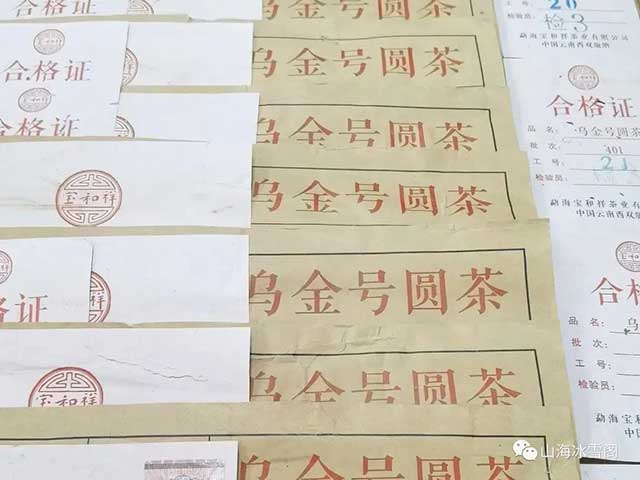 合格证
宝和祥
合格证
宝和祥
宝和祥
宝和祥
乌金号圆茶
乌金号圆茶
乌金号圆茶
乌金号圆茶
乌金号圆茶
乌金号圆茶
乌金号圆茶
工号: 20
检验员: 检3
勐海宝和祥茶业有限公司
中国云南西双版纳
合格证
品名: 乌金号圆茶
批次: 401
工号: 21
检验员:
勐海宝和祥茶业有
中国云南西双版
合格
品名: 乌
批次:
工号:
检验员:
勐海宝
中国
山海冰雪阁